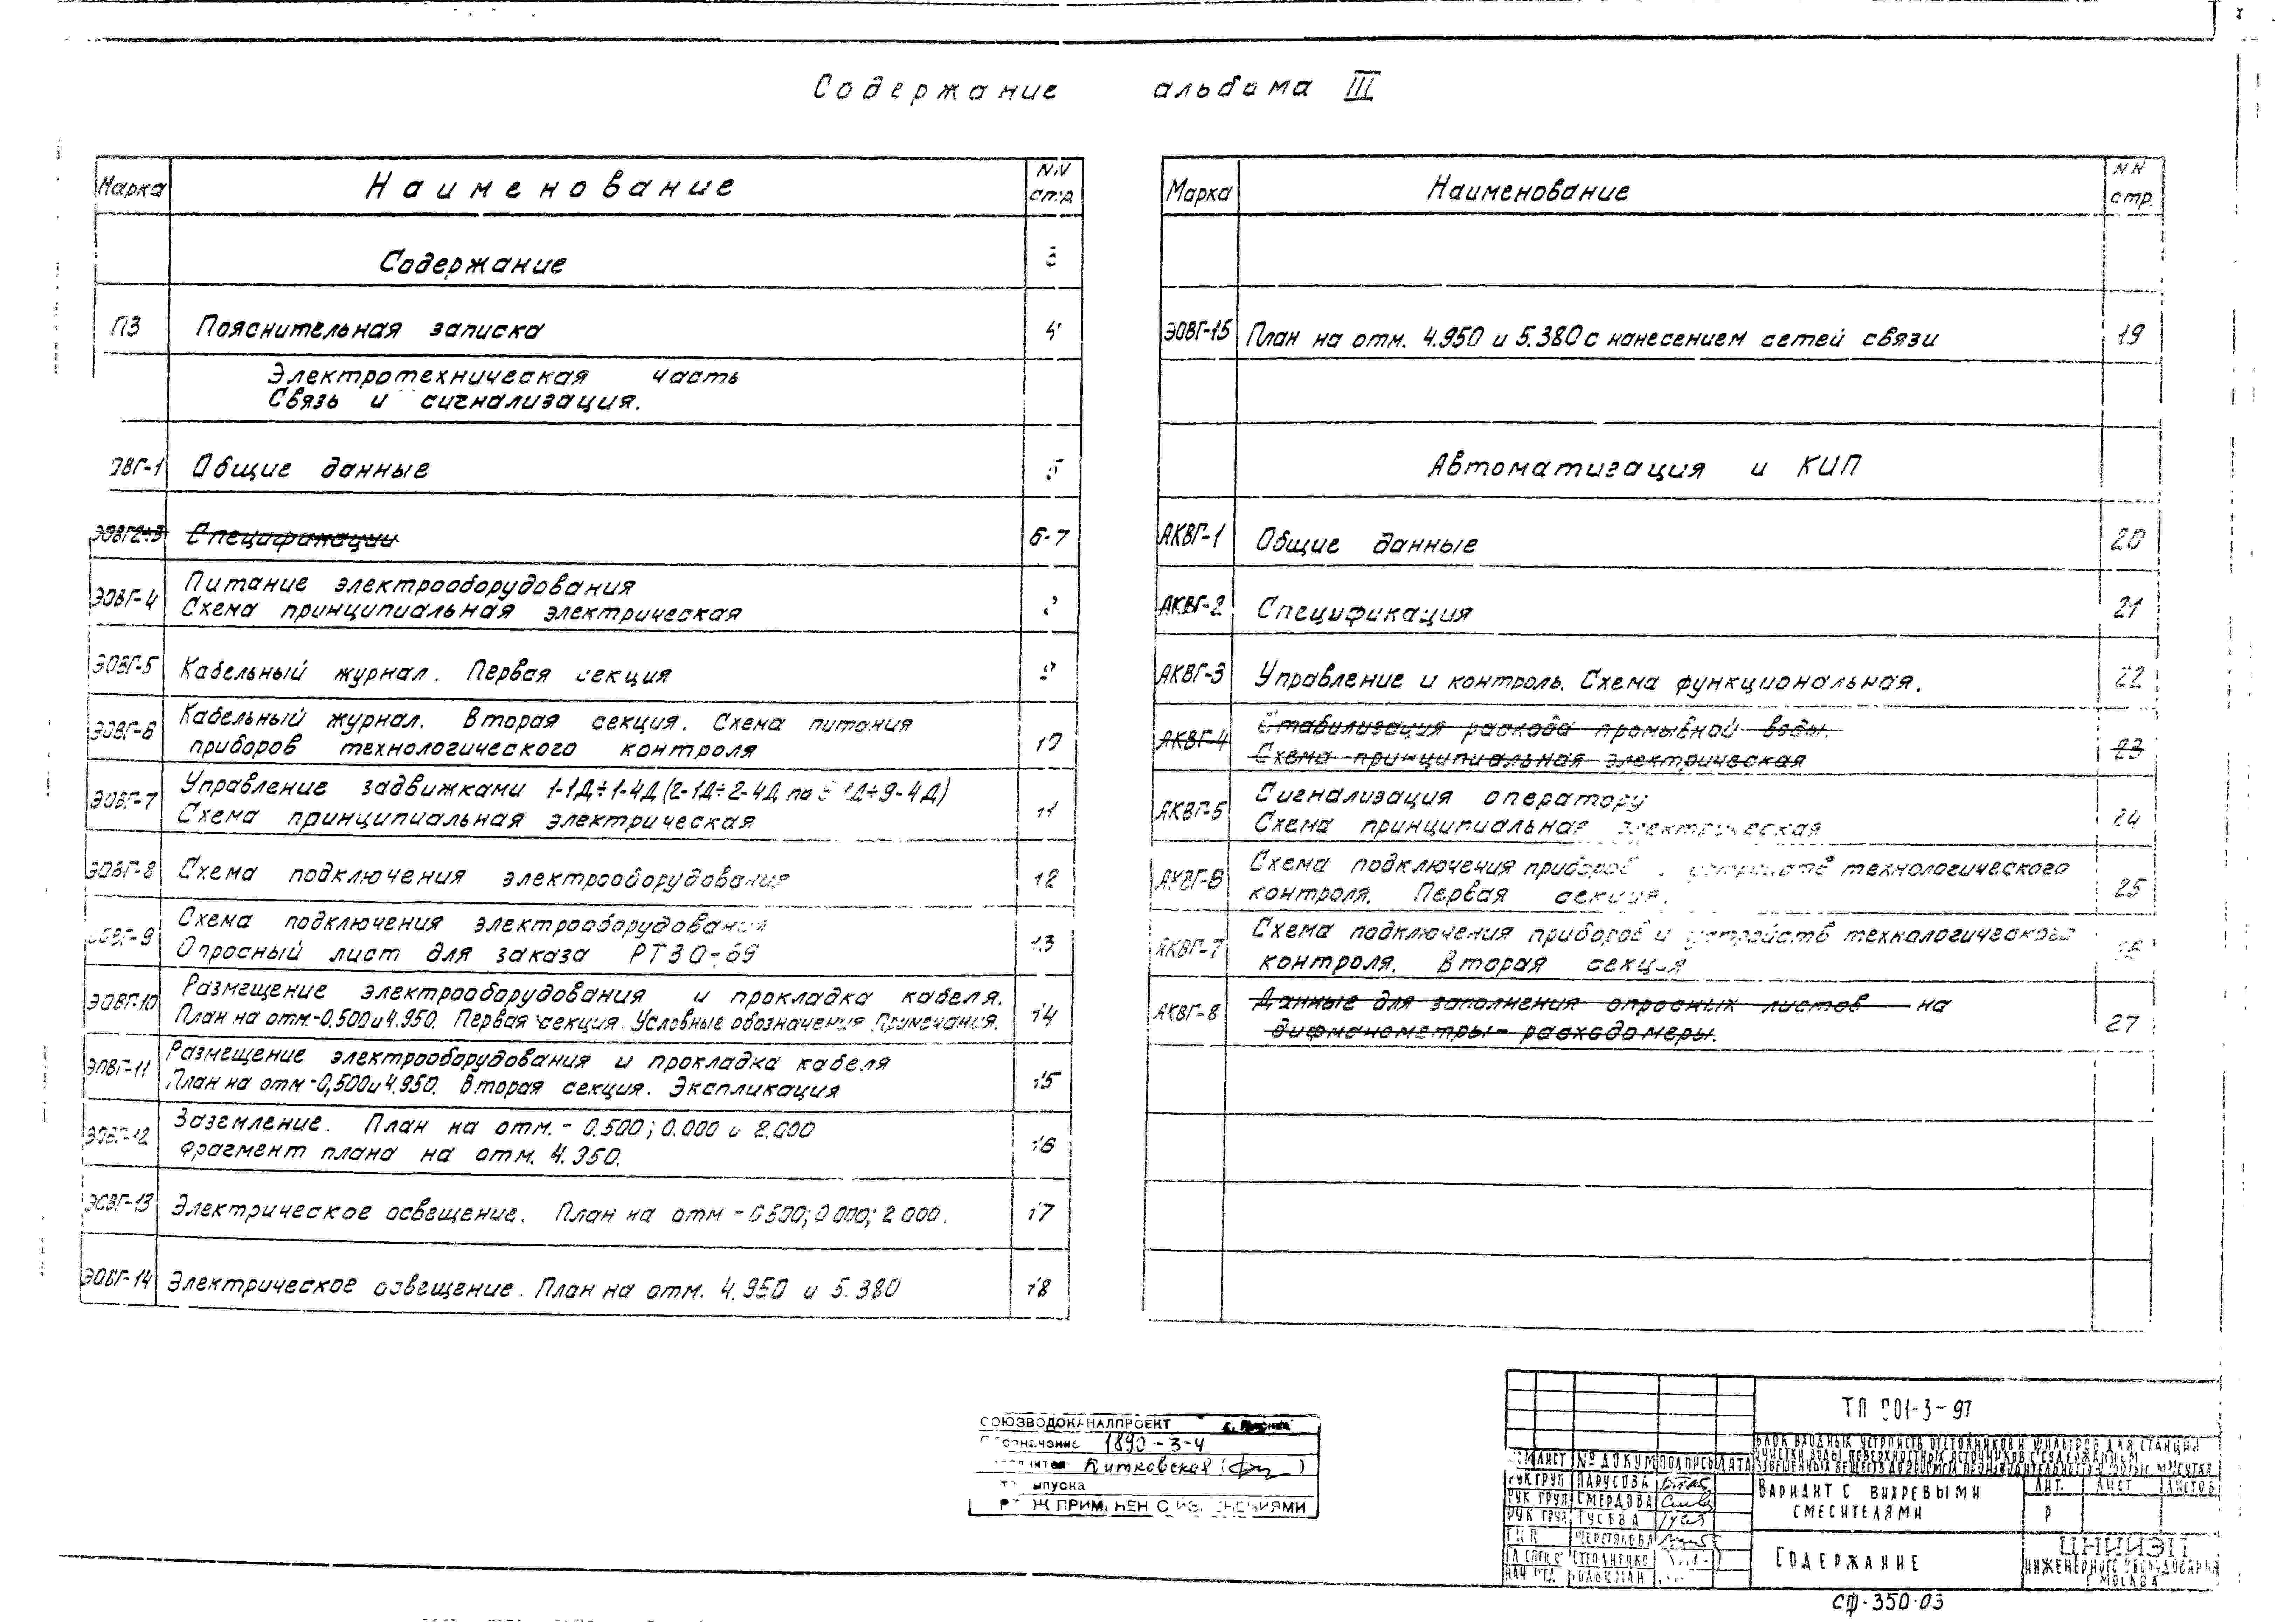 Содержание альбома III
Марка Наименование NN стр.
Содержание 3
ПЗ Пояснительная записка 4
Электротехническая часть
Связь и сигнализация.
ЭОВГ-1 Общие данные 5
ЭОВГ2÷3 Спецификации 6-7
Питание электрооборудования
ЭОВГ-4 Схема принципиальная электрическая
ЭОВГ-5 Кабельный журнал. Первая секция 9
Кабельный журнал. Вторая секция. Схема питания
ЭОВГ-6 приборов технологического контроля 10
Управление задвижками 1-1Д÷1-4Д (2-1Д÷2-4Д по 9-1Д÷9-4Д)
ЭОВГ-7 Схема принципиальная электрическая 11
ЭОВГ-8 Схема подключения электрооборудования 12
Схема подключения электрооборудования
ЭОВГ-9 Опросный лист для заказа РТ30-69 13
Размещение электрооборудования и прокладка кабеля.
ЭОВГ-10 План на отм.-0.500 и 4.950. Первая секция. Условные обозначения Примечания. 14
Размещение электрооборудования и прокладка кабеля
ЭОВГ-11 План на отм-0,500 и 4.950. Вторая секция. Экспликация 15
Заземление. План на отм.- 0.500; 0.000 и 2.000
ЭОВГ-12 Фрагмент плана на отм. 4.950. 16
ЭОВГ-13 Электрическое освещение. План на отм -0 500; 0 000; 2 000. 17
ЭОВГ-14 Электрическое освещение. План на отм. 4.950 и 5.380 18
Марка Наименование NN стр.
ЭОВГ-15 План на отм. 4.950 и 5.380 с нанесением сетей связи 19
Автоматизация и КИП
АКВГ-1 Общие данные 20
АКВГ-2 Спецификация 21
АКВГ-3 Управление и контроль. Схема функциональная. 22
Стабилизация расхода промывной воды.
АКВГ-4 Схема принципиальная электрическая 23
Сигнализация оператору
АКВГ-5 Схема принципиальная электрическая 24
Схема подключения приборов и устройств технологического
АКВГ-6 контроля. Первая секция. 25
Схема подключения приборов и устройств технологического
АКВГ-7 контроля. Вторая секция 26
Данные для заполнения опросных листов на
АКВГ-8 дифманометры-расходомеры. 27
СОЮЗВОДОКАНАЛПРОЕКТ
Обозначение 1890-3-4
Витковская
выпуска
ПРИМЕНЕН С ИЗМЕНЕНИЯМИ
ТП 901-3-97
БЛОК ВХОДНЫХ УСТРОЙСТВ ОТСТОЙНИКОВ И ФИЛЬТРОВ ДЛЯ СТАНЦИИ
ОЧИСТКИ ВОДЫ ПОВЕРХНОСТНЫХ ИСТОЧНИКОВ С СОДЕРЖАНИЕМ
ВЗВЕШЕННЫХ ВЕЩЕСТВ
ЛИСТ № ДОКУМ ПОДПИСЬ ДАТА
РУК ГРУП ПАРУСОВА
РУК ГРУП СМЕРДОВА
РУК ГРУП ГУСЕВА
ГИП
ГЛ СПЕЦ СТЕПАНЕНКО
НАЧ ОТД
ВАРИАНТ С ВИХРЕВЫМИ
СМЕСИТЕЛЯМИ
ЛИТ. ЛИСТ ЛИСТОВ
Р
СОДЕРЖАНИЕ
ЦНИИЭП
ИНЖЕНЕРНОГО ОБОРУДОВАНИЯ
Г МОСКВА
СФ-350-03